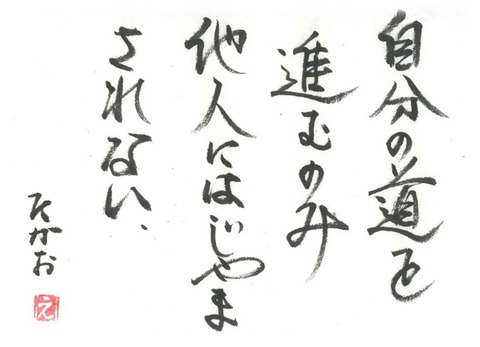 自分の道を
進むのみ
他人にはじゃま
されない、
えがお
え